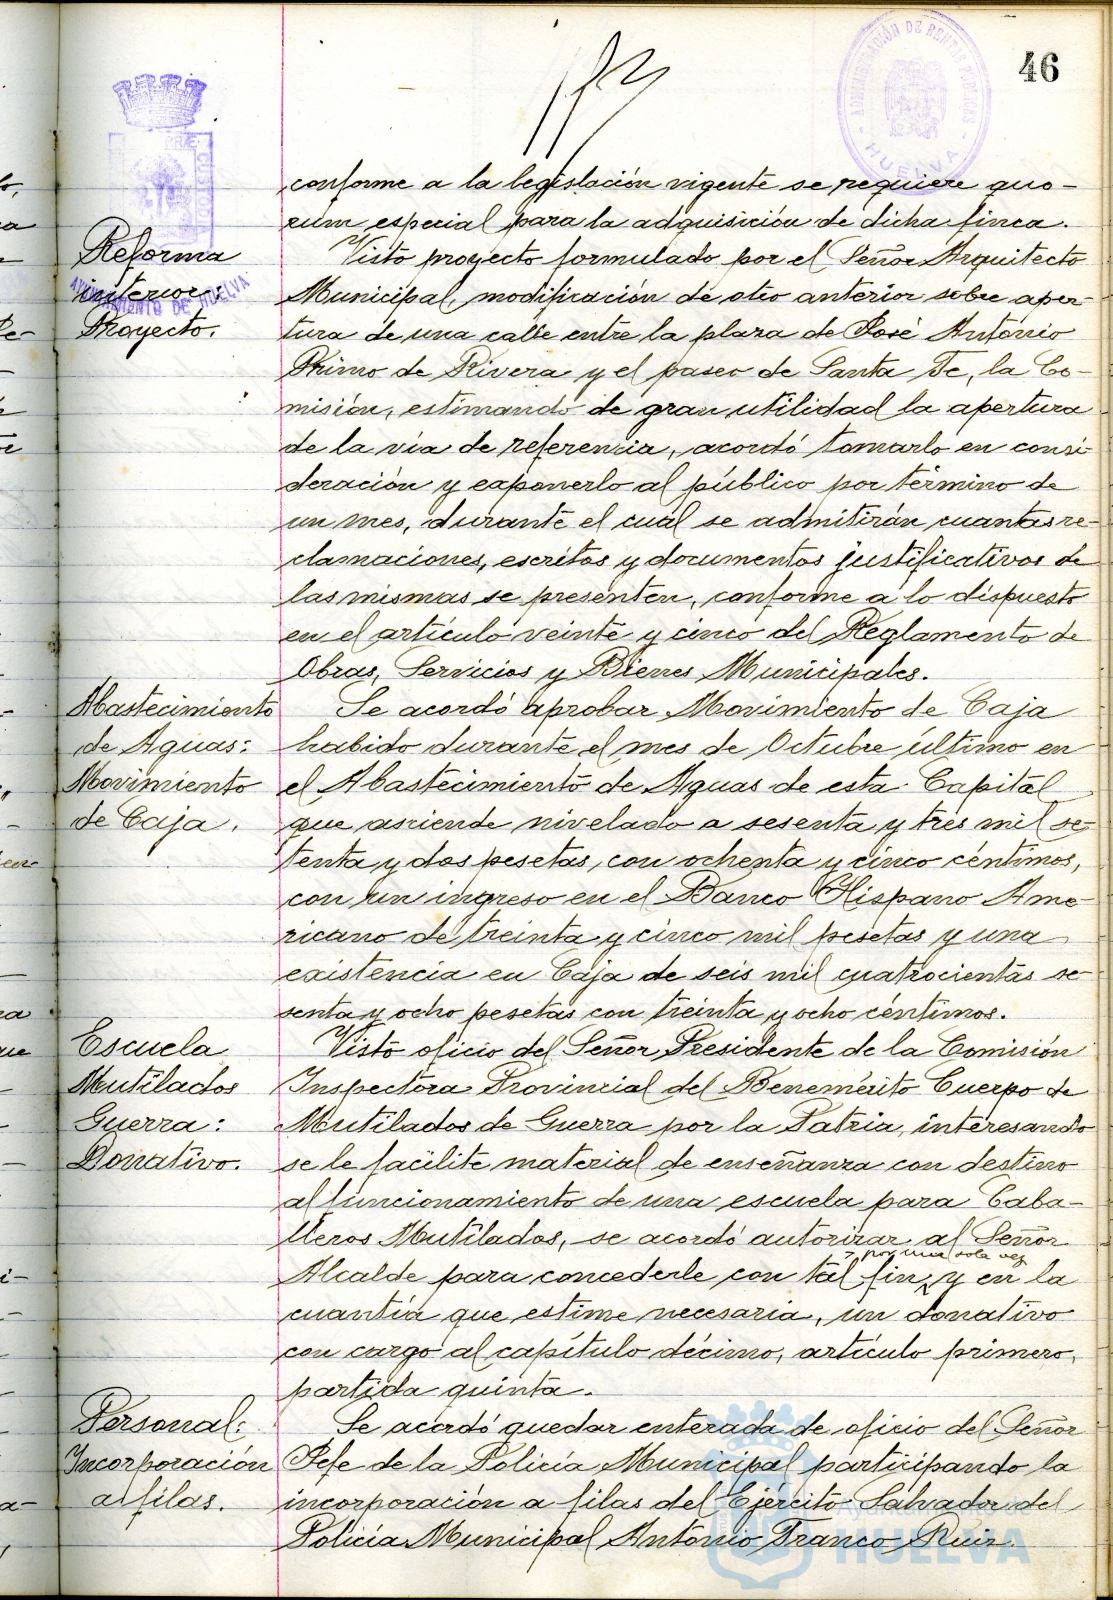 46
ADMINISTRACIÓN DE RENTAS PÚBLICAS - HUELVA -
AYUNTAMIENTO DE HUELVA
conforme a la legislación vigente se requiere quo-
rum especial para la adquisición de dicha finca.
Reforma
interior:
Proyecto.
Visto proyecto formulado por el Señor Arquitecto
Municipal, modificación de otro anterior sobre aper-
tura de una calle entre la plaza de José Antonio
Primo de Rivera y el paseo de Santa Fe, la Co-
misión, estimando de gran utilidad la apertura
de la vía de referencia, acordó tomarlo en consi-
deración y exponerlo al público por término de
un mes, durante el cuál se admitirán cuantas re-
clamaciones, escritos y documentos justificativos de
las mismas se presenten, conforme a lo dispuesto
en el artículo veinte y cinco del Reglamento de
Obras, Servicios y Bienes Municipales.
Abastecimiento
de Aguas:
Movimiento
de Caja.
Se acordó aprobar Movimiento de Caja
habido durante el mes de Octubre último en
el Abastecimiento de Aguas de esta Capital
que asciende nivelado a sesenta y tres mil se-
tenta y dos pesetas, con ochenta y cinco céntimos,
con un ingreso en el Banco Hispano Ame-
ricano de treinta y cinco mil pesetas y una
existencia en Caja de seis mil cuatrocientas se-
senta y ocho pesetas con treinta y ocho céntimos.
Escuela
Mutilados
Guerra:
Donativo.
Visto oficio del Señor Presidente de la Comisión
Inspectora Provincial del Benemérito Cuerpo de
Mutilados de Guerra por la Patria, interesando
se le facilite material de enseñanza con destino
al funcionamiento de una escuela para Caba-
lleros Mutilados, se acordó autorizar al Señor
por una sola vez
Alcalde para concederle con tal fin, y en la
cuantía que estime necesaria, un donativo
con cargo al capítulo décimo, artículo primero,
partida quinta.
Personal:
Incorporación
a filas.
Se acordó quedar enterada de oficio del Señor
Jefe de la Policía Municipal participando la
incorporación a filas del Ejército Salvador del
Policía Municipal Antonio Franco Ruiz.
Ayuntamiento de
HUELVA